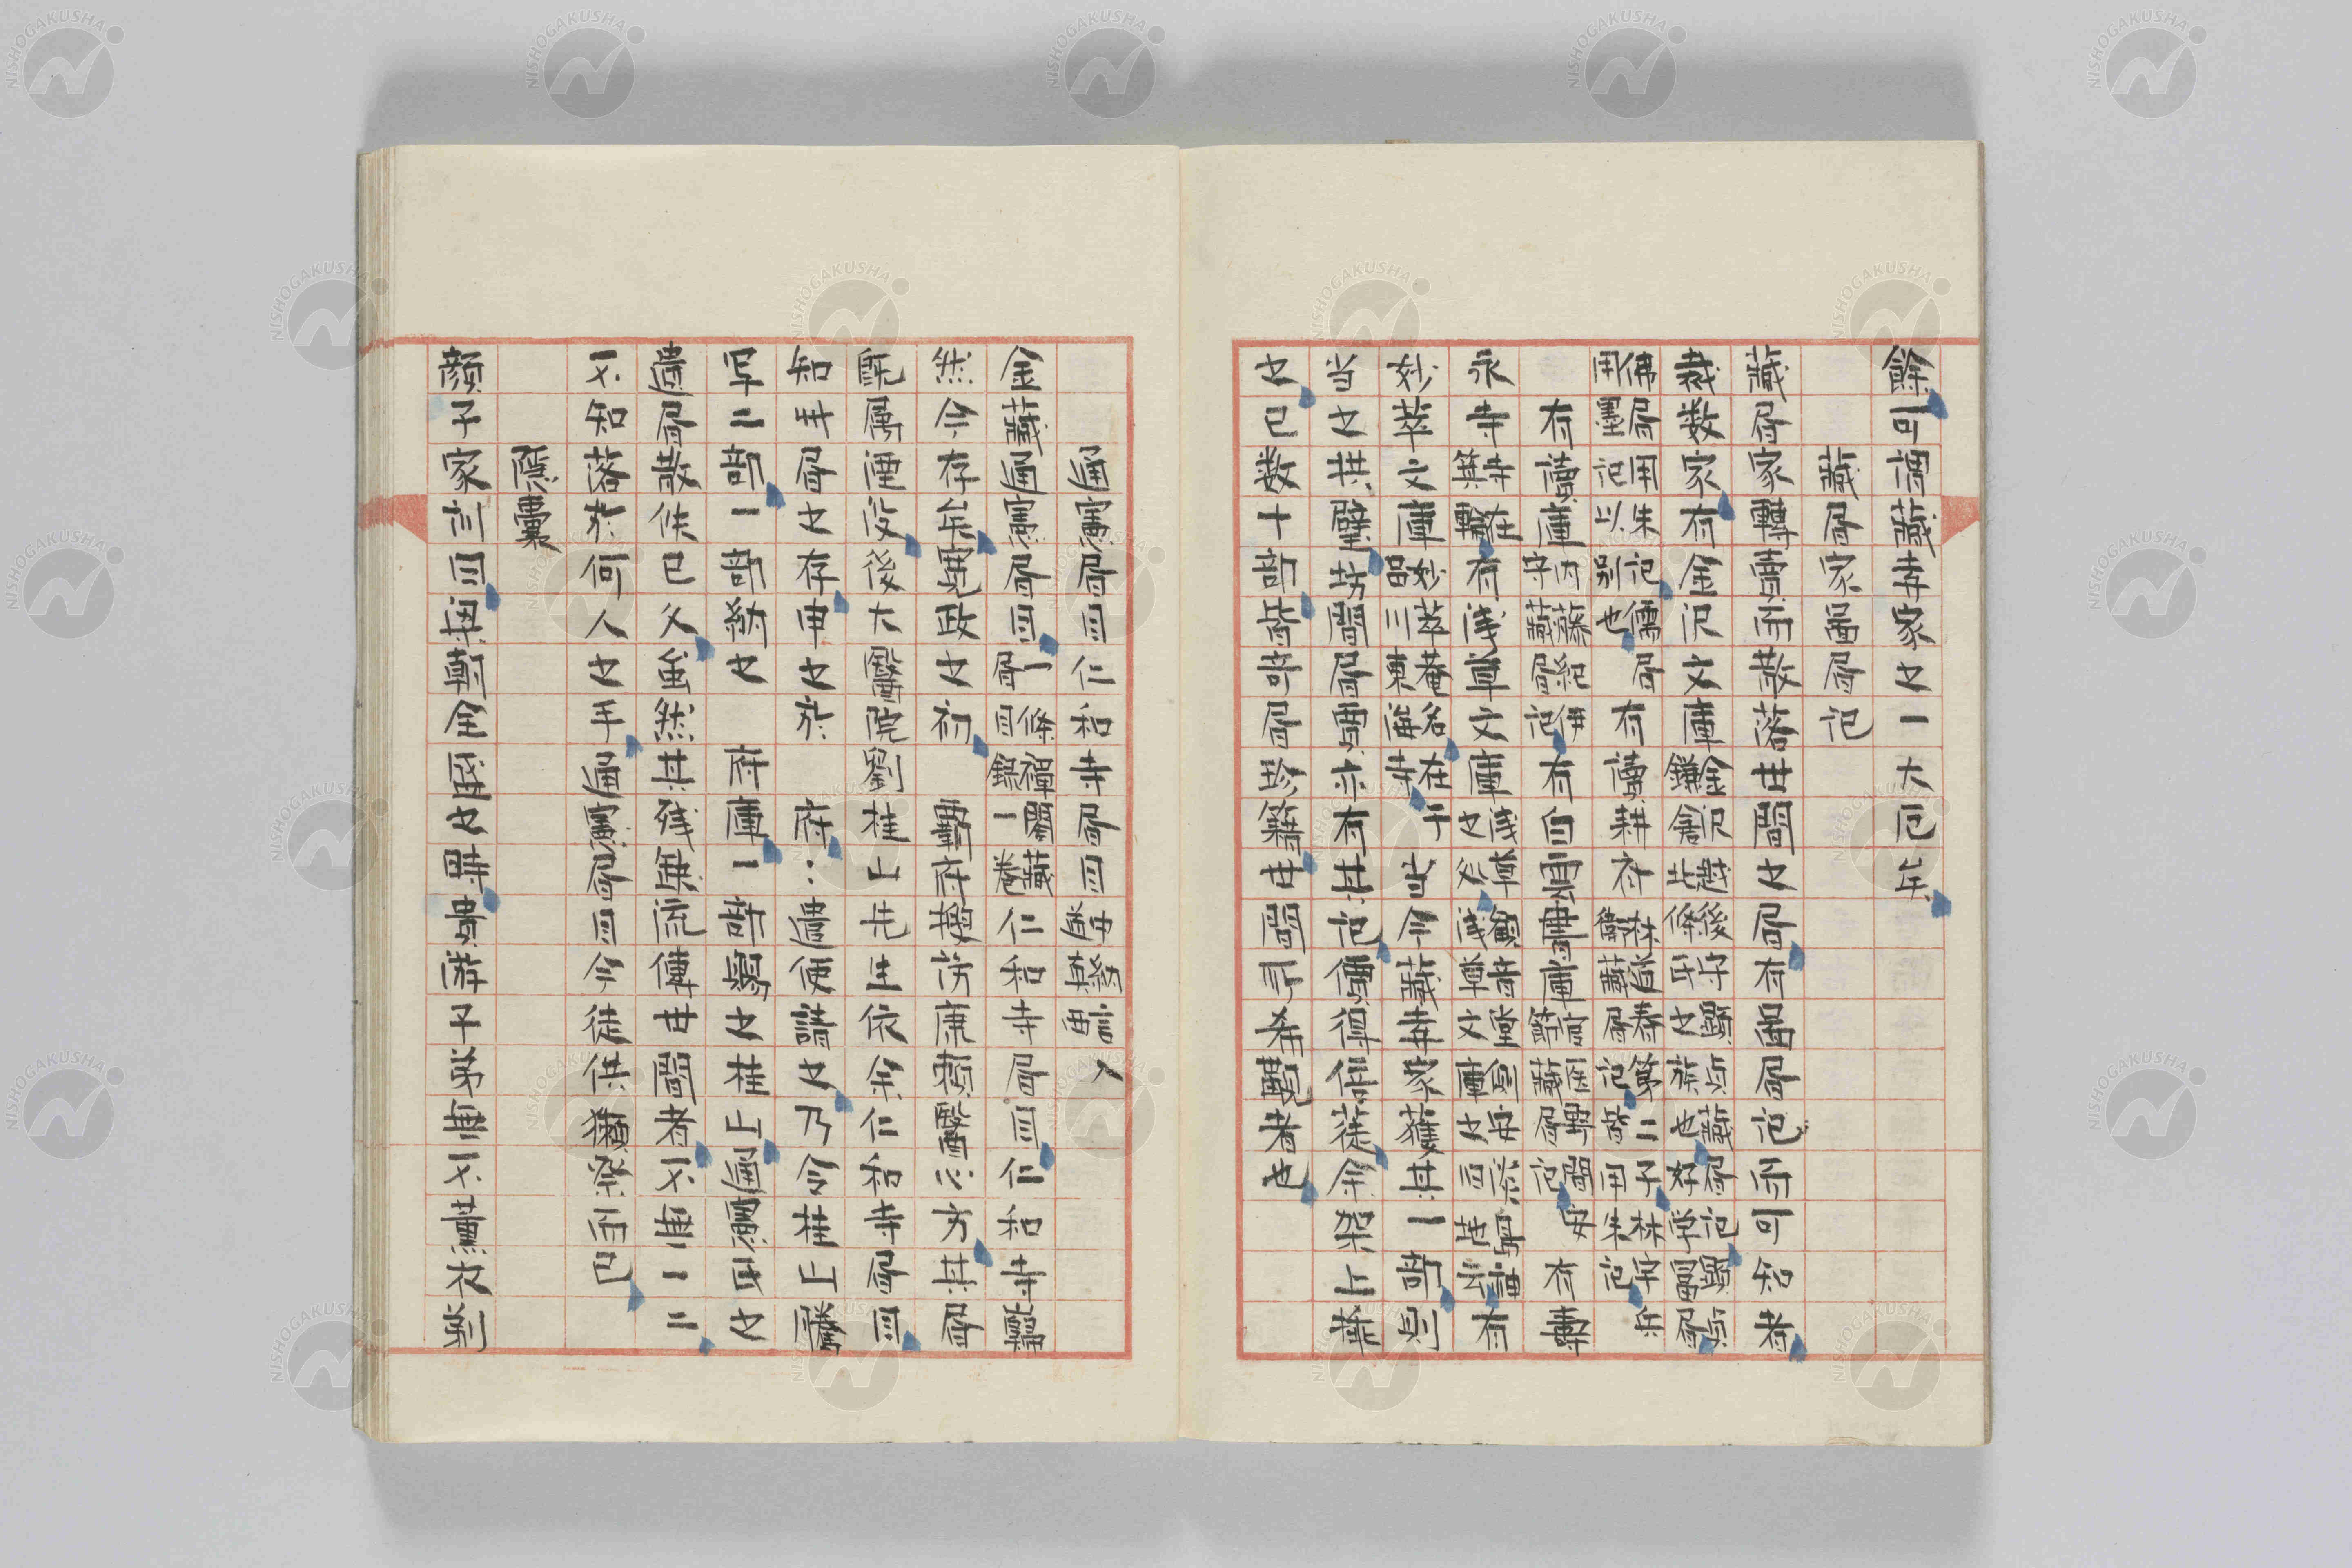 餘可謂藏書家之一大厄矣
藏書家圖書記
藏書家轉賣而散落世間之書有圖書記而可知者
裁数家有金沢文庫金沢越後守顕貞藏書記顕貞鎌倉北條氏之族也好学冨書
佛書用朱記儒書用墨記以別也有讀耕斎林道春第二子林字兵衛藏書記皆用朱記
有讀庫内藤紀伊守藏書記有自雲書庫官医野間安節藏書記有東
永寺寺在箕輪有浅草文庫有
妙萃文庫妙萃菴名在品川東海寺于当今藏書家獲其一部則
当之拱璧坊間書賈亦有其記價得倍蓰余架上藏
之已数十部皆奇書珍籍世間可希覯者也
通憲書目仁和寺書目
金藏通憲書目一條禪閣藏書目録一巻仁和寺書目仁和寺舊
然今存矣寛政之初覇府搜訪康頼醫心方其書
既属湮没後大醫院劉桂山先生依余仁和寺書目
知其書之存申之於府:遣使請之乃令桂山謄
写二部一部納之府庫一部賜之桂山通憲目之
遺書散佚已久虽然其残編流傳世間者不無一二
不知落於何人之手通憲書目今徒供獺祭而已
隠囊
顔子家訓曰梁朝全盛之時貴游子弟無不薫衣剃